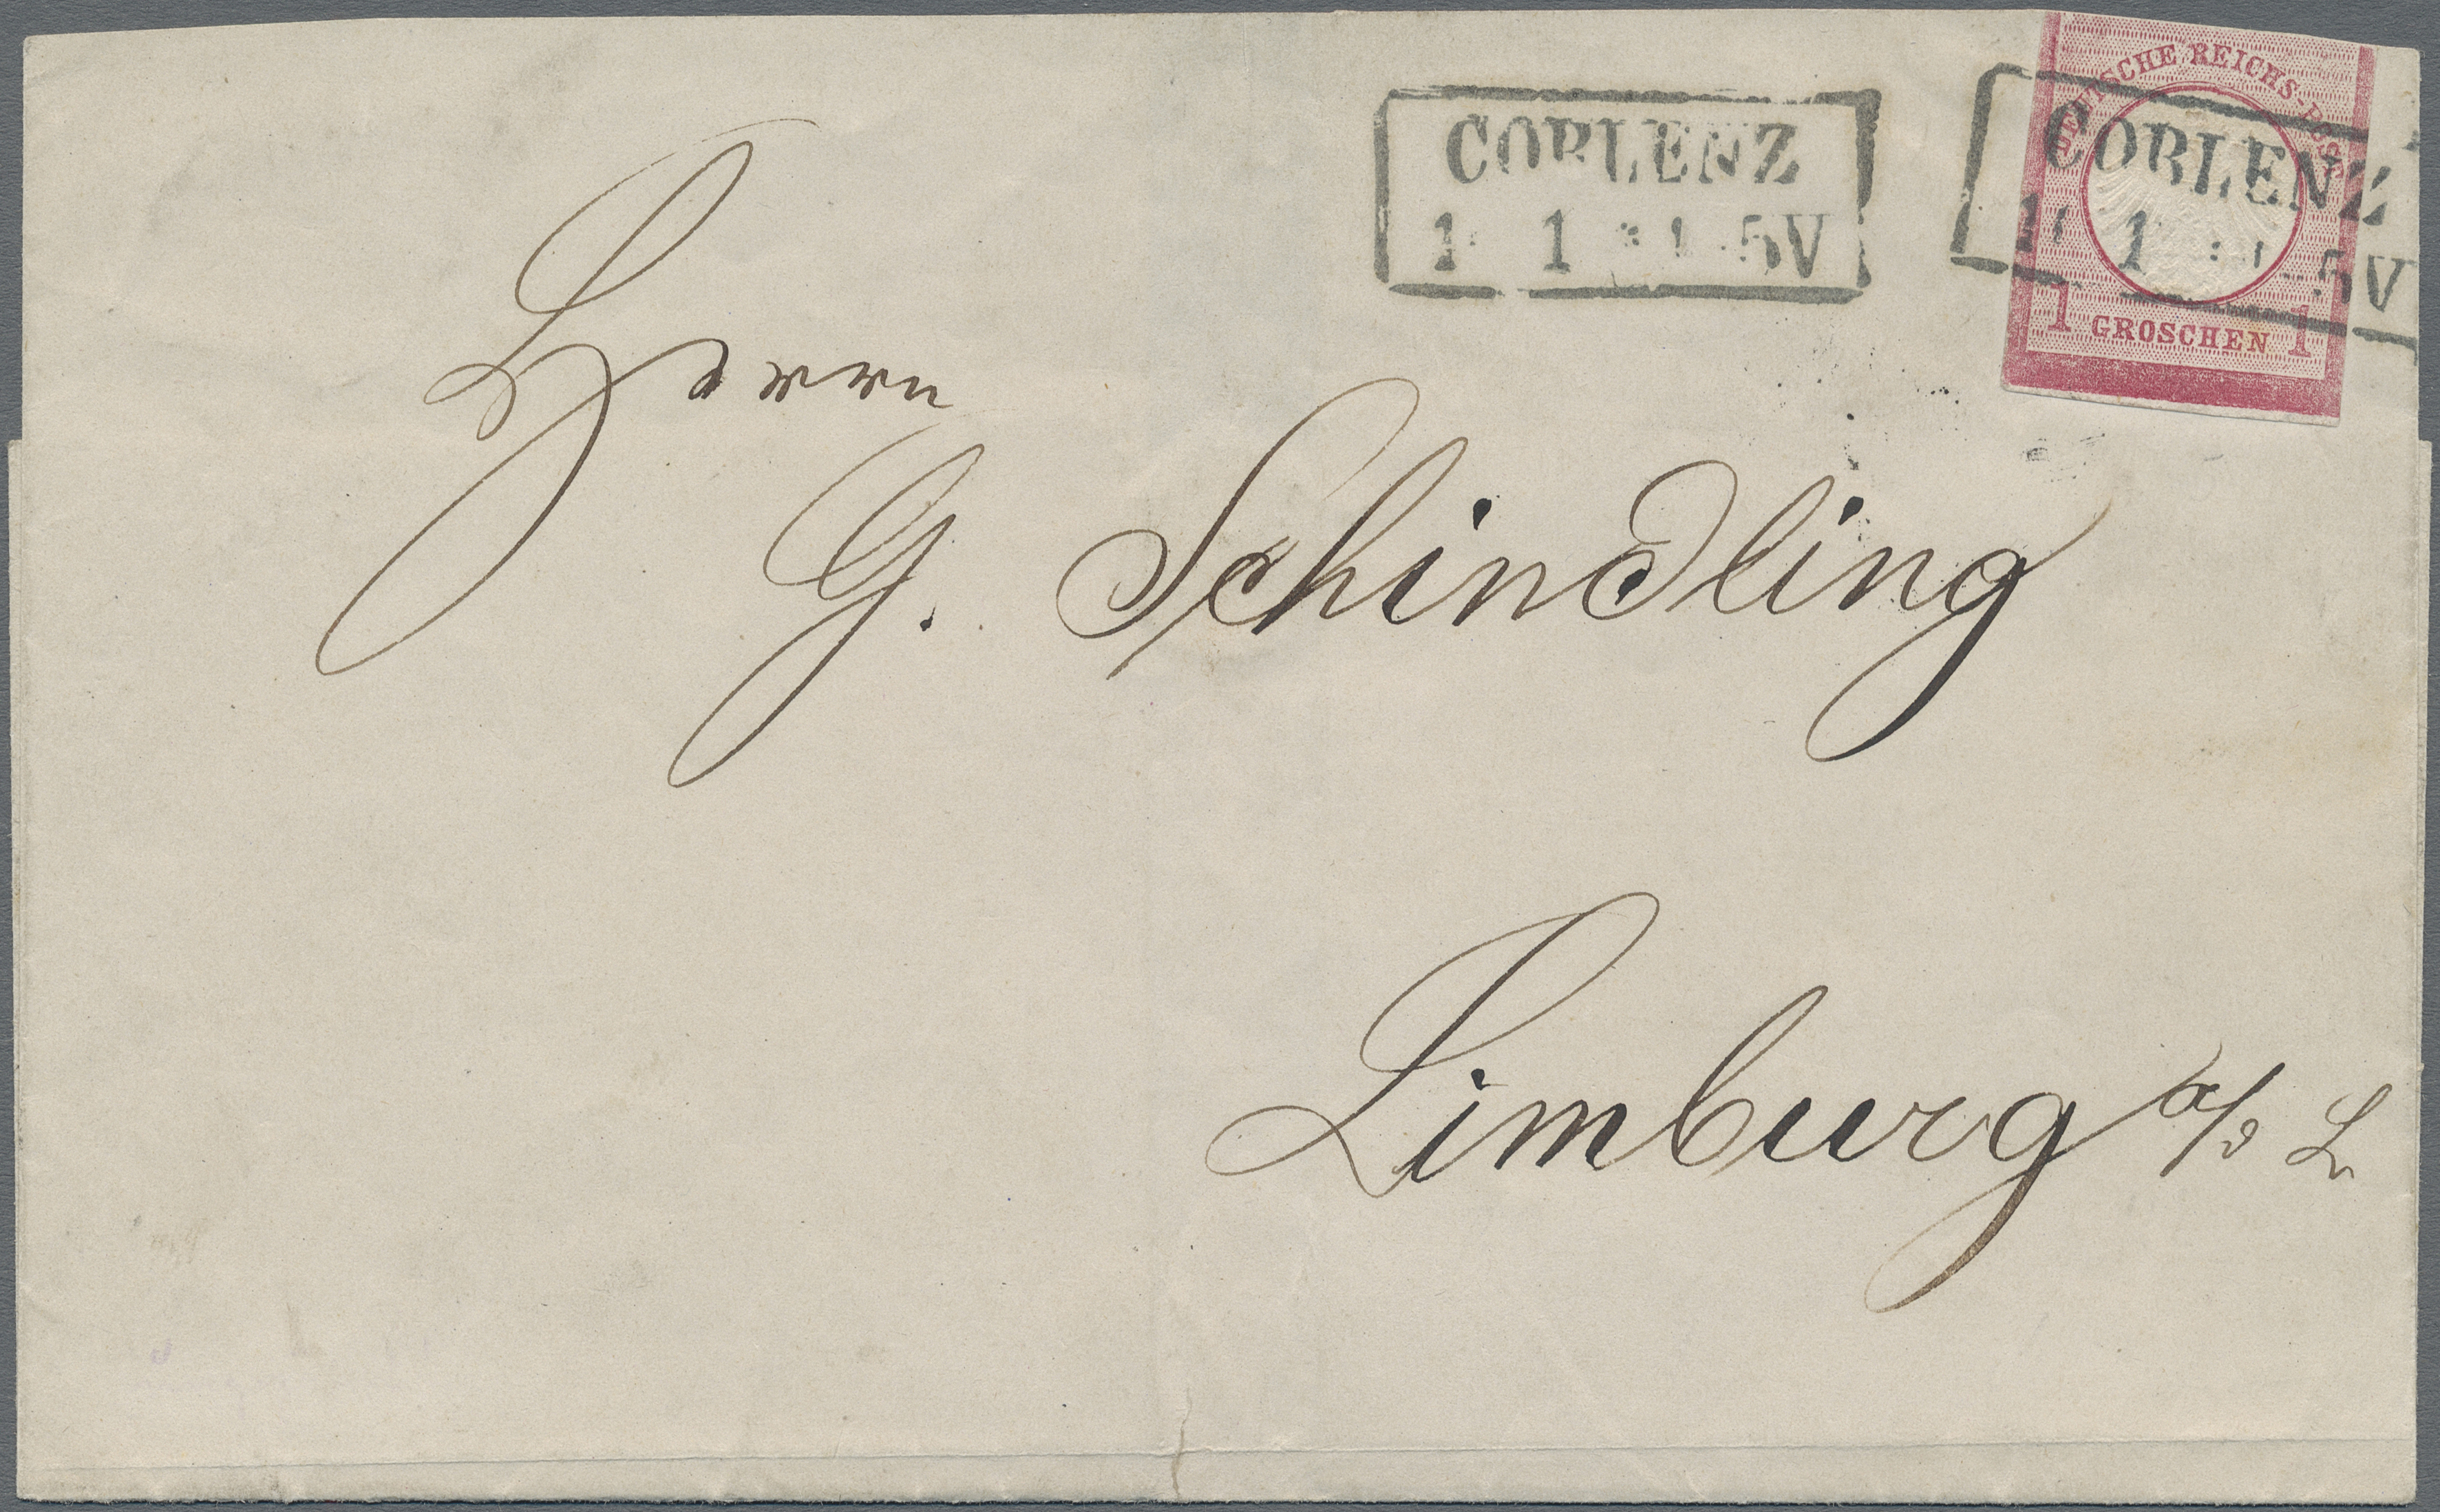 COBLENZ
1 1 5V
DEUTSCHE REICHS-POST
COBLENZ
1 5V
1 GROSCHEN 1
Herrn
G. Schindling
Limburg a/d L